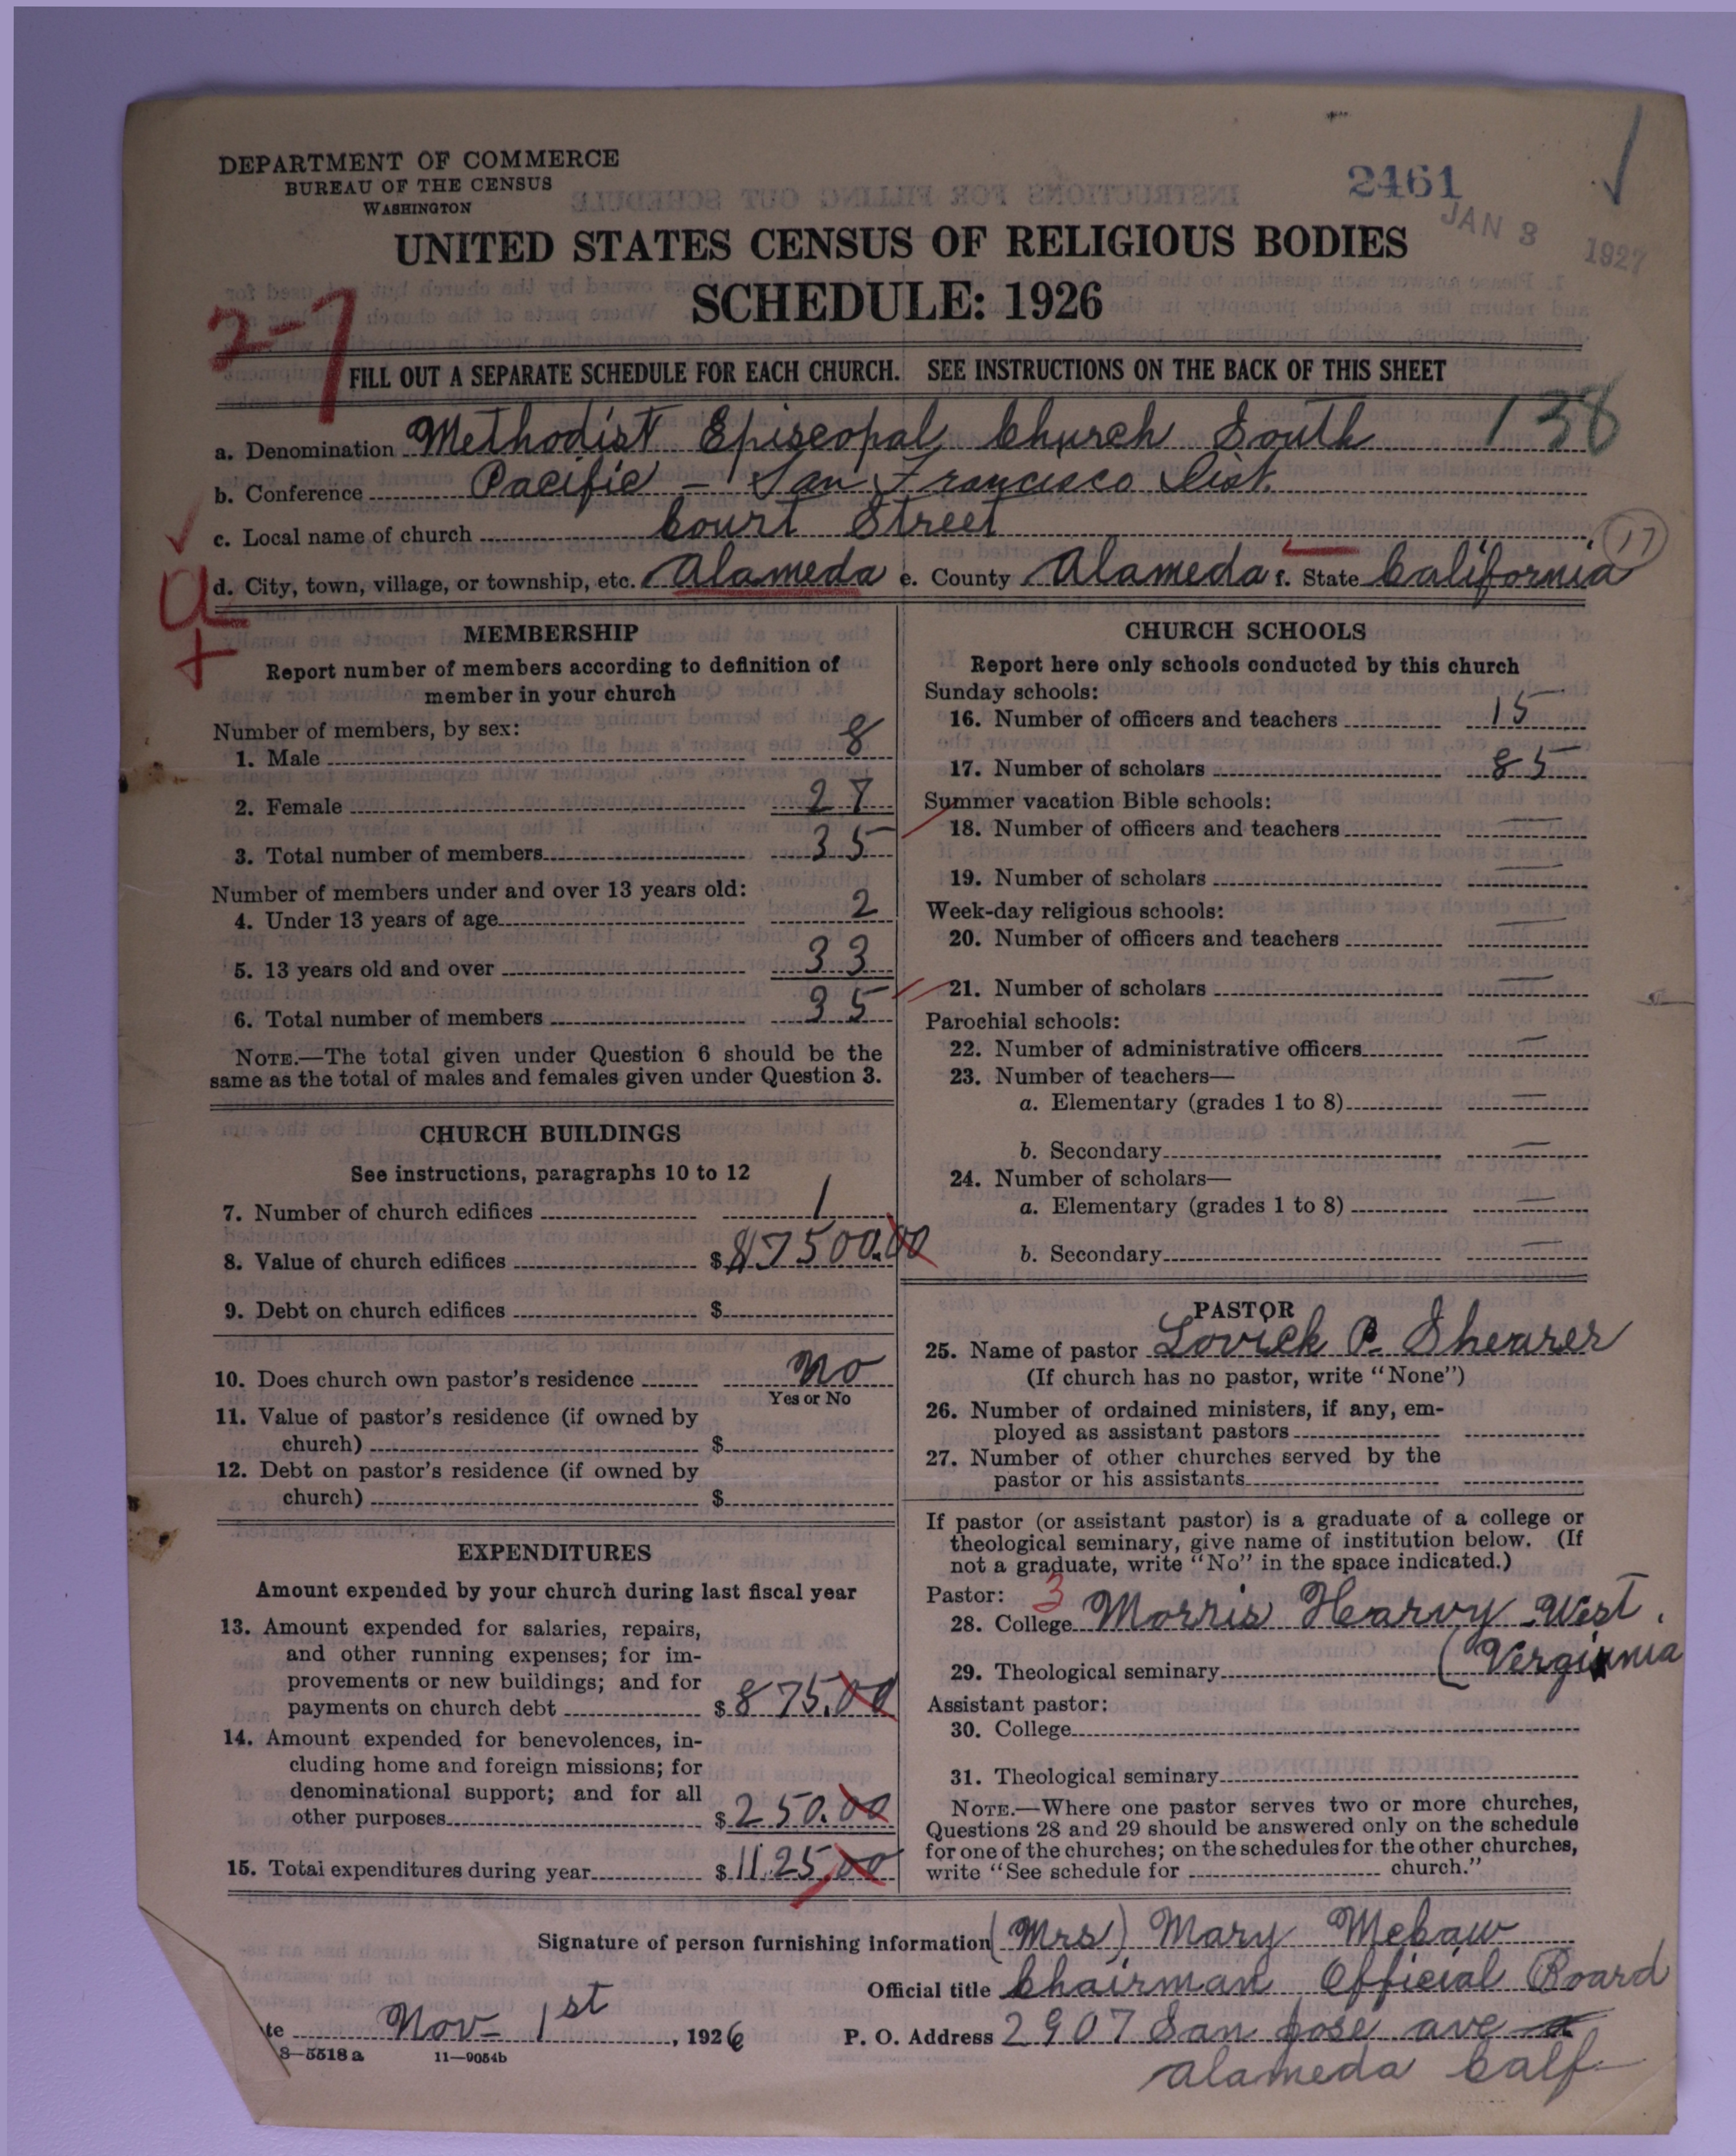 DEPARTMENT OF COMMERCE
BUREAU OF THE CENSUS
WASHINGTON
2461
JAN 3 1927
UNITED STATES CENSUS OF RELIGIOUS BODIES
SCHEDULE: 1926
2-7
FILL OUT A SEPARATE SCHEDULE FOR EACH CHURCH. SEE INSTRUCTIONS ON THE BACK OF THIS SHEET
a. Denomination Methodist Episcopal Church South 138
b. Conference Pacific - San Francisco Dist.
c. Local name of church Court Street
17
d. City, town, village, or township, etc. Alameda e. County Alameda f. State California
a
+
MEMBERSHIP
Report number of members according to definition of
member in your church
Number of members, by sex:
1. Male 8
2. Female 27
3. Total number of members 35
Number of members under and over 13 years old:
4. Under 13 years of age 2
5. 13 years old and over 33
6. Total number of members 35
NOTE.—The total given under Question 6 should be the
same as the total of males and females given under Question 3.
CHURCH BUILDINGS
See instructions, paragraphs 10 to 12
7. Number of church edifices 1
8. Value of church edifices $ 17500.00
9. Debt on church edifices $
10. Does church own pastor's residence No
Yes or No
11. Value of pastor's residence (if owned by
church) $
12. Debt on pastor's residence (if owned by
church) $
EXPENDITURES
Amount expended by your church during last fiscal year
13. Amount expended for salaries, repairs,
and other running expenses; for im-
provements or new buildings; and for
payments on church debt $ 875.00
14. Amount expended for benevolences, in-
cluding home and foreign missions; for
denominational support; and for all
other purposes $ 250.00
15. Total expenditures during year $ 1125.00
CHURCH SCHOOLS
Report here only schools conducted by this church
Sunday schools:
16. Number of officers and teachers 15
17. Number of scholars 85
Summer vacation Bible schools:
18. Number of officers and teachers —
19. Number of scholars —
Week-day religious schools:
20. Number of officers and teachers —
21. Number of scholars —
Parochial schools:
22. Number of administrative officers —
23. Number of teachers—
a. Elementary (grades 1 to 8) —
b. Secondary —
24. Number of scholars—
a. Elementary (grades 1 to 8) —
b. Secondary —
PASTOR
25. Name of pastor Lovick P. Shearer
(If church has no pastor, write "None")
26. Number of ordained ministers, if any, em-
ployed as assistant pastors
27. Number of other churches served by the
pastor or his assistants
If pastor (or assistant pastor) is a graduate of a college or
theological seminary, give name of institution below. (If
not a graduate, write "No" in the space indicated.)
Pastor: 3
28. College Morris Hearvy West.
29. Theological seminary (Verginnia
Assistant pastor:
30. College
31. Theological seminary
NOTE.—Where one pastor serves two or more churches,
Questions 28 and 29 should be answered only on the schedule
for one of the churches; on the schedules for the other churches,
write "See schedule for church."
Signature of person furnishing information (Mrs) Mary Mebaw
Official title Chairman Official Board
te Nov- 1st, 1926 P. O. Address 2907 San Jose ave
Alameda Calf-
8—5518 a 11—9054b